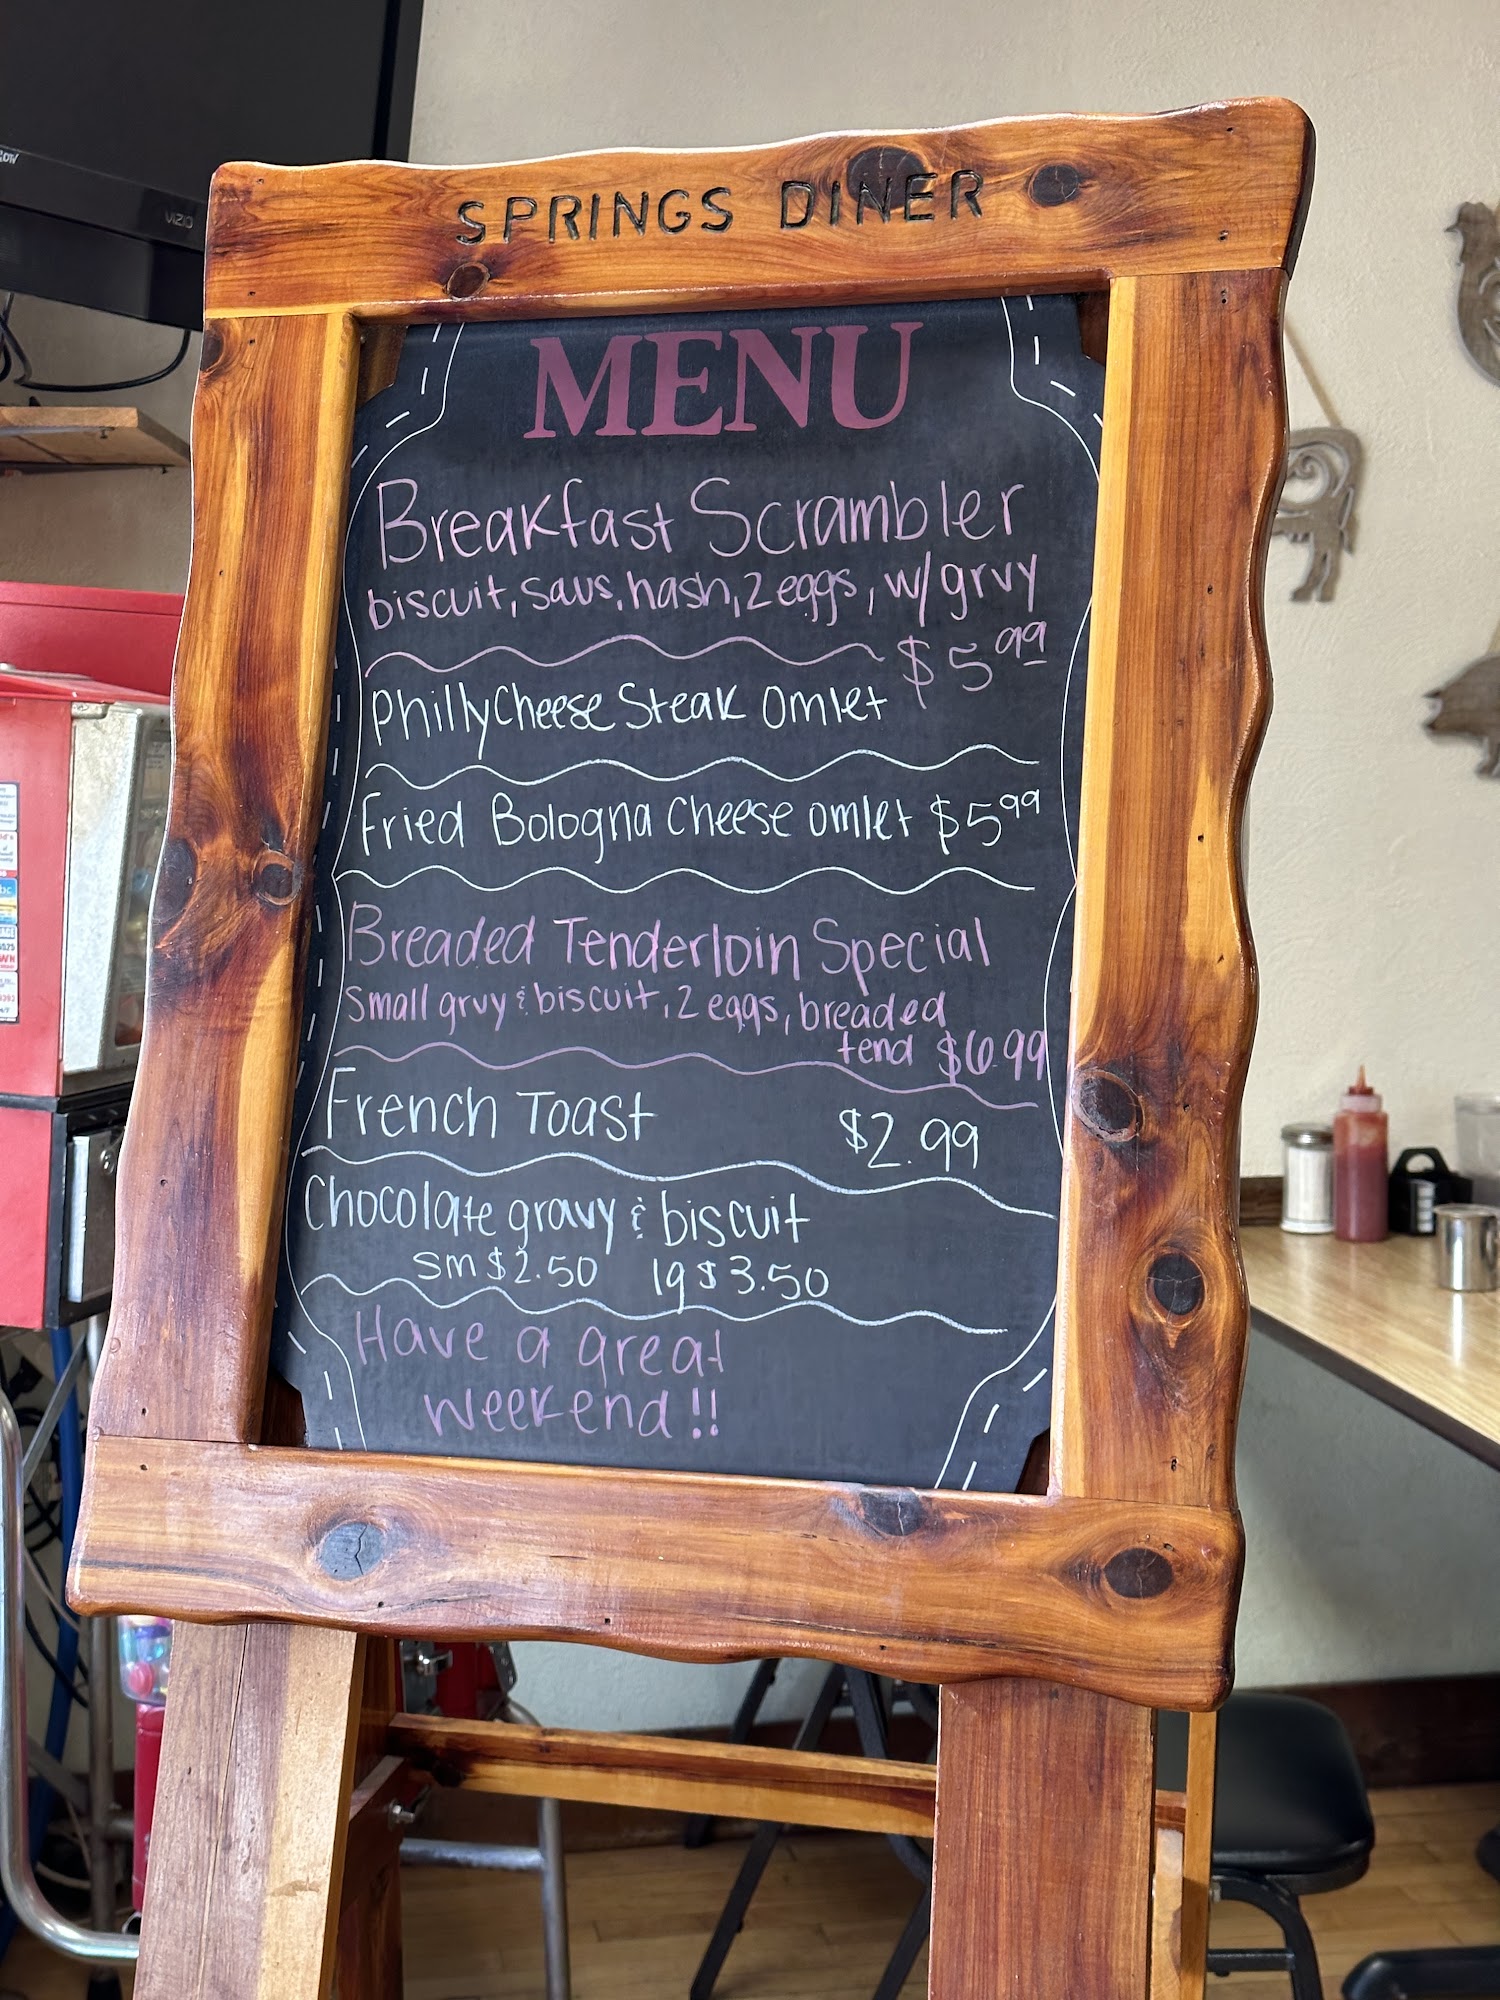 VIZIO
SPRINGS DINER
MENU
Breakfast Scrambler
biscuit, saus, hash, 2 eggs, w/ grvy
$5.99
Philly Cheese Steak Omlet
Fried Bologna Cheese omlet $5.99
Breaded Tenderloin Special
Small grvy & biscuit, 2 eggs, breaded
tend $6.99
French Toast $2.99
Chocolate gravy & biscuit
sm $2.50 lg $3.50
Have a great
weekend!!